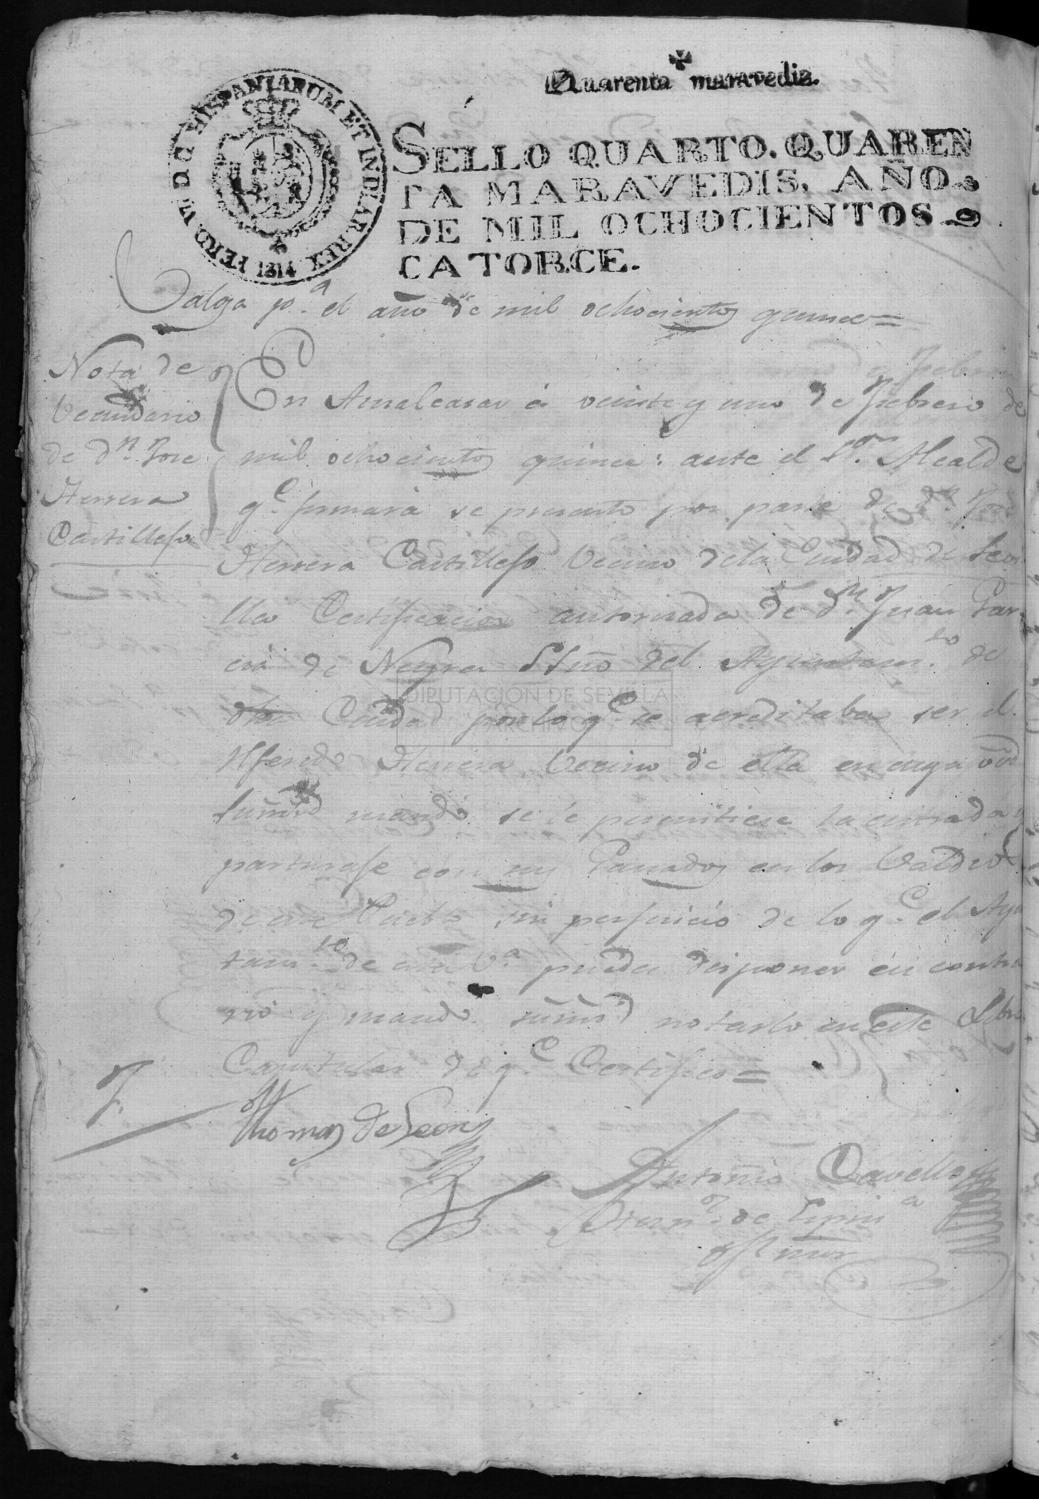 Quarenta maravedis.
FERD. VII. D. G. HISPANIARUM ET INDIAR. REX 1814
SELLO QUARTO. QUAREN
TA MARAVEDIS. AÑO
DE MIL OCHOCIENTOS
CATORCE.
Valga p.ª el año de mil ochocientos quince=
Nota de
Vecindario
de dn. Jose
Herrera
Castillejo
En Aznalcasar á veinte y uno de Febrero de
mil ochocientos quince: ante el Sor. Alcalde
q.e firmará se presento por parte de dn. Jose
Herrera Castillejo Vecino de la Ciudad de Sevi
lla Certificacion autorizada de dn. Juan Gar
cia de Neyra Ssno del Ayuntam.to de
dha Ciudad por lo q.e se acreditaba ser el
Herrera Vecino de ella en cuya
mando se le permitiese la entrada
parturase con sus Ganados en los Valdios
de este Pueblo sin perjuicio de lo q.e el Ayu
tam.to de esta V.ª pueda disponer en contra
rio y mando notarlo en este Libro
Capitular de q.e Certifico=
Thomas de Leon
Antonio Cavello
DIPUTACIÓN DE SEVILLA
ARCHIVO